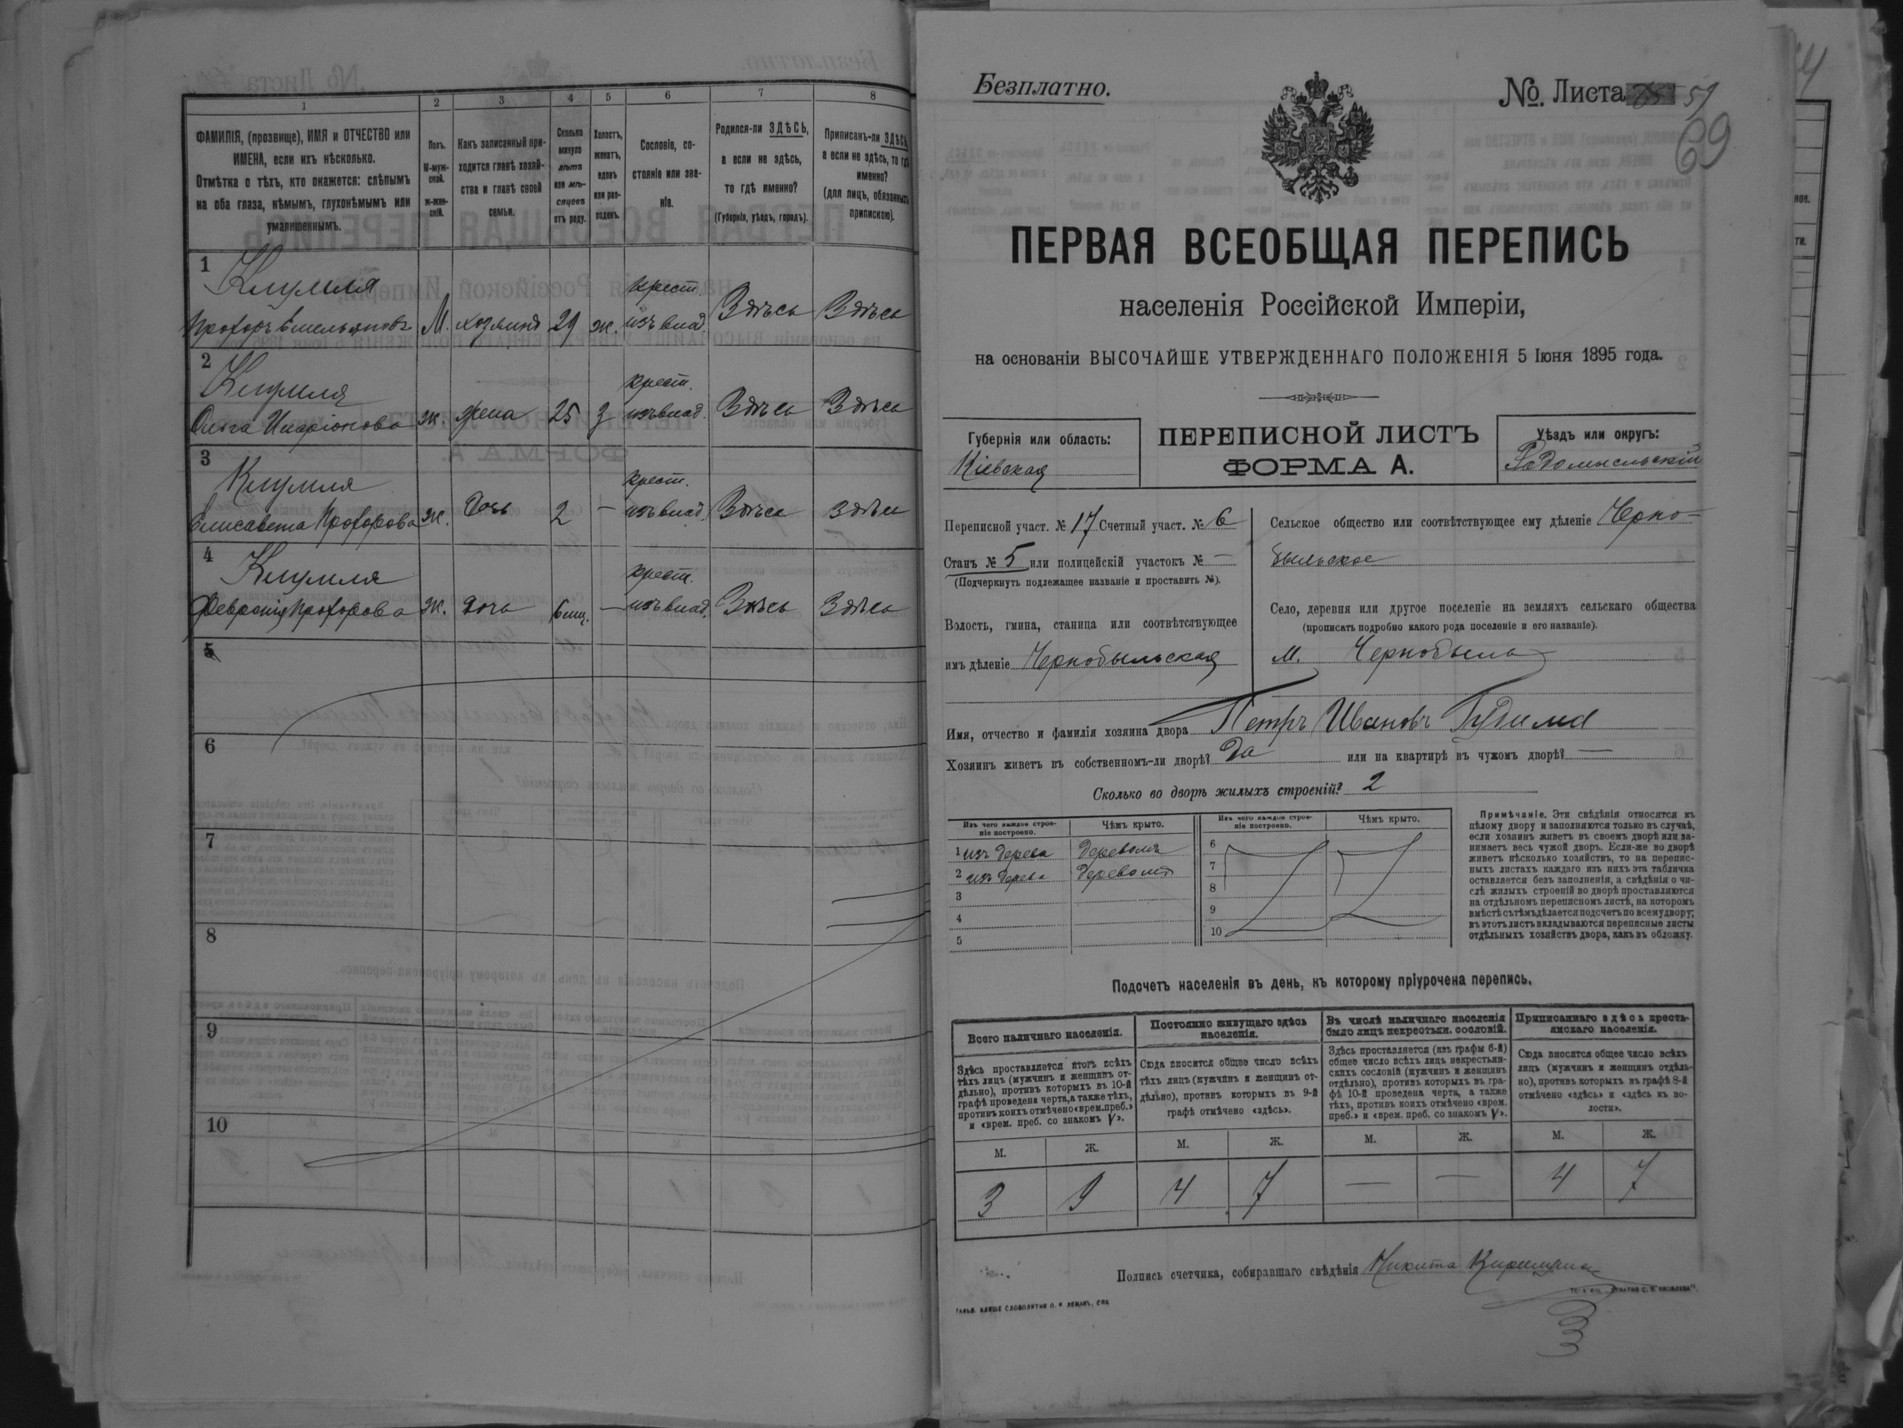 1 2 3 4 5 6 7 8
ФАМИЛІЯ, (прозвище), ИМЯ и ОТЧЕСТВО или
ИМЕНА, если ихъ нѣсколько.
Отмѣтка о тѣхъ, кто окажется: слѣпымъ
на оба глаза, нѣмымъ, глухонѣмымъ или
умалишеннымъ.
Полъ.
М-муж-
ской.
ж-жен-
скій.
Какъ записанный при-
ходится главѣ хозяй-
ства и главѣ своей
семьи.
Сколько
минуло
лѣтъ
или мѣ-
сяцевъ
отъ роду.
Холостъ,
женатъ,
вдовъ
или раз-
веденъ.
Сословіе, со-
стояніе или зва-
ніе.
Родился-ли ЗДѢСЬ,
а если не здѣсь,
то гдѣ именно?
(Губернія, уѣздъ, городъ).
Приписанъ-ли ЗДѢСЬ,
а если не здѣсь, то гдѣ
именно?
(для лицъ, обязанныхъ
припискою).
1
крест.
Прохоръ Емельяновъ М. хозяинъ 29 ж. изъ влад. Здѣсь Здѣсь
2
крест.
Ольга Иларіонова Ж. жена 25 З изъ влад. Здѣсь Здѣсь
3
крест.
Елисавета Прохорова Ж. дочь 2 — изъ влад. Здѣсь Здѣсь
4
крест.
Февронія Прохорова Ж. дочь 6 мц. — изъ влад. Здѣсь Здѣсь
5
6
7
8
9
10
Безплатно.
№ Листа 51
69
ПЕРВАЯ ВСЕОБЩАЯ ПЕРЕПИСЬ
населенія Россійской Имперіи,
на основаніи ВЫСОЧАЙШЕ УТВЕРЖДЕННАГО ПОЛОЖЕНІЯ 5 Іюня 1895 года.
Губернія или область:
Кіевская
ПЕРЕПИСНОЙ ЛИСТЪ
ФОРМА А.
Уѣздъ или округъ:
Радомысльскій
Переписной участ. № 17 Счетный участ. № 6
Станъ № 5 или полицейскій участокъ № —
(Подчеркнуть подлежащее названіе и проставить №).
Волость, гмина, станица или соотвѣтствующее
имъ дѣленіе Чернобыльская
Сельское общество или соотвѣтствующее ему дѣленіе Черно-
быльское
Село, деревня или другое поселеніе на земляхъ сельскаго общества
(прописать подробно какого рода поселеніе и его названіе).
м. Чернобыль
Имя, отчество и фамилія хозяина двора Петръ Ивановъ Гудима
Хозяинъ живетъ въ собственномъ-ли дворѣ? Да или на квартирѣ въ чужомъ дворѣ? —
Сколько во дворѣ жилыхъ строеній? 2
Изъ чего каждое строе-
ніе построено.
Чѣмъ крыто.
Изъ чего каждое строе-
ніе построено.
Чѣмъ крыто.
1 изъ дерева деревомъ
2 изъ дерева деревомъ
3
4
5
6
7
8
9
10
Примѣчаніе. Эти свѣдѣнія относятся къ
цѣлому двору и заполняются только въ случаѣ,
если хозяинъ живетъ въ своемъ дворѣ или за-
нимаетъ весь чужой дворъ. Если-же во дворѣ
живетъ нѣсколько хозяйствъ, то на перепис-
ныхъ листахъ каждаго изъ нихъ эта табличка
оставляется безъ заполненія, а свѣдѣнія о чи-
слѣ жилыхъ строеній во дворѣ проставляются
на отдѣльномъ переписномъ листѣ, на которомъ
вмѣстѣ съ тѣмъ дѣлается подсчетъ по всему двору;
въ этотъ листъ вкладываются переписные листы
отдѣльныхъ хозяйствъ двора, какъ въ обложку.
Подсчетъ населенія въ день, къ которому пріурочена перепись.
Всего наличнаго населенія.
Здѣсь проставляется итогъ всѣхъ
тѣхъ лицъ (мужчинъ и женщинъ от-
дѣльно), противъ которыхъ въ 10-й
графѣ проведена черта, а также тѣхъ,
противъ коихъ отмѣчено «врем. преб.»
и «врем. преб. со знакомъ V».
Постоянно живущаго здѣсь
населенія.
Сюда вносится общее число всѣхъ
тѣхъ лицъ (мужчинъ и женщинъ от-
дѣльно), противъ которыхъ въ 9-й
графѣ отмѣчено «здѣсь».
Въ числѣ наличнаго населенія
было лицъ некрестьян. сословій.
Здѣсь проставляется (изъ графы 6-й)
общее число всѣхъ лицъ некрестьян-
скихъ сословій (мужчинъ и женщинъ
отдѣльно), противъ которыхъ въ гра-
фѣ 10-й проведена черта, а также
тѣхъ, противъ коихъ отмѣчено «врем.
преб.» и «врем. преб. со знакомъ V».
Приписаннаго здѣсь кресть-
янскаго населенія.
Сюда вносится общее число всѣхъ
лицъ (мужчинъ и женщинъ отдѣль-
но), противъ которыхъ въ графѣ 8-й
отмѣчено «здѣсь» и «здѣсь въ во-
лости».
М. Ж. М. Ж. М. Ж. М. Ж.
3 9 4 7 — — 4 7
Подпись счетчика, собиравшаго свѣдѣнія Никита